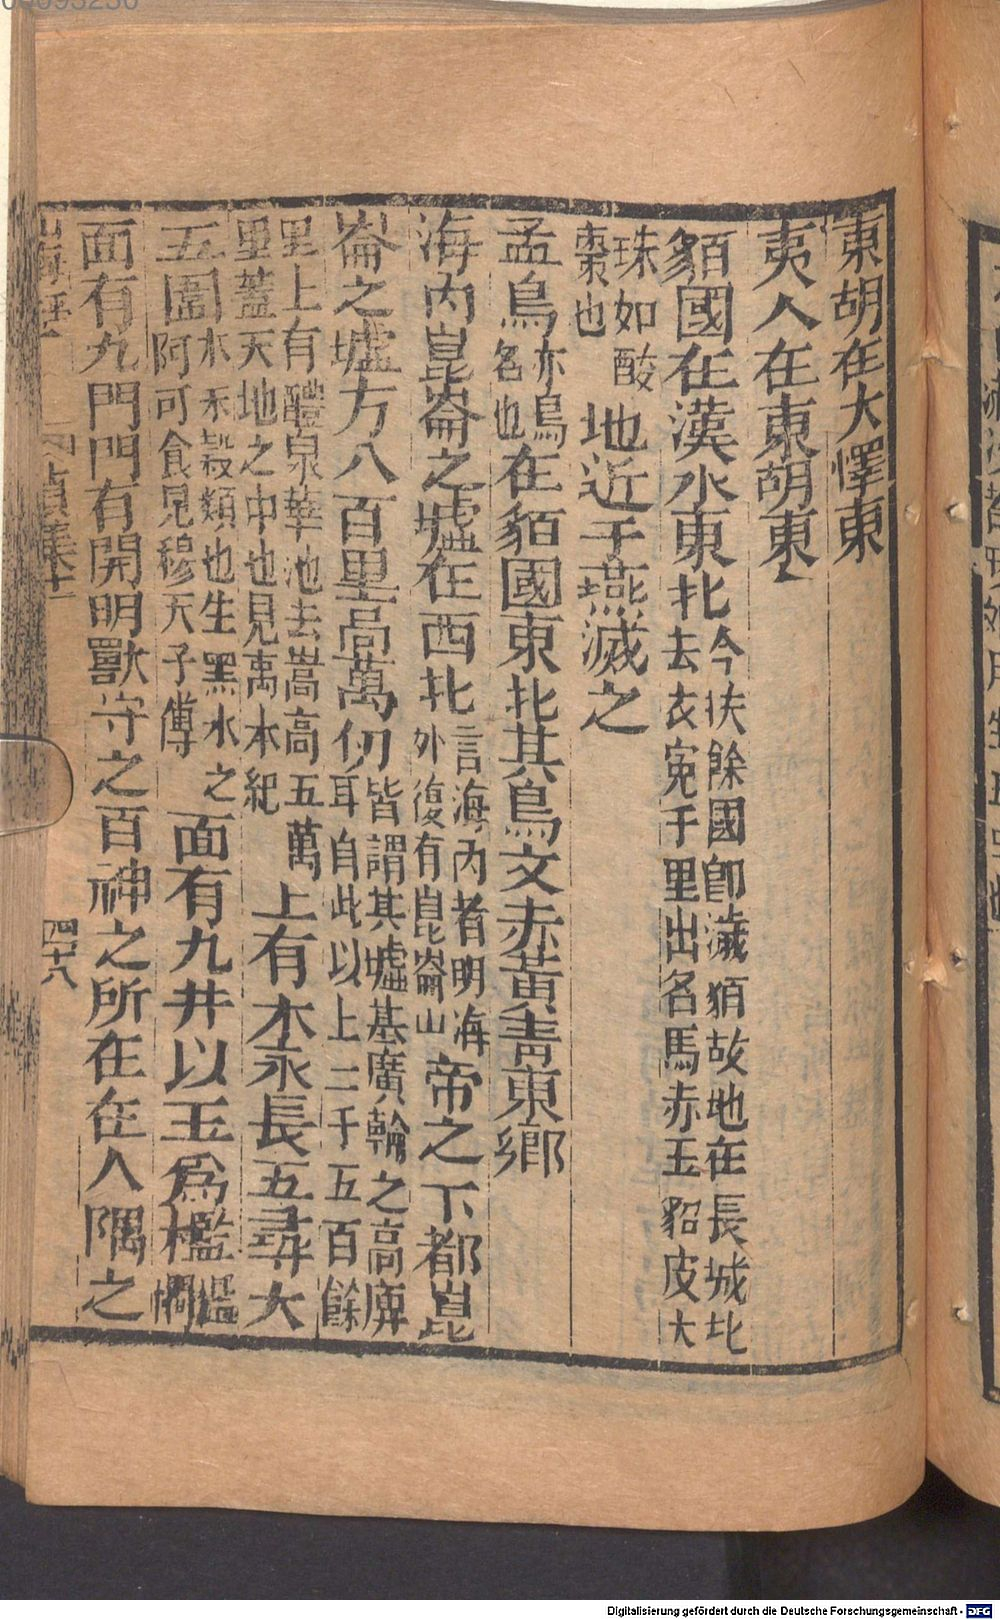 東胡在大澤東
夷人在東胡東
貊國在漢水東北今扶餘國卽濊貊故地在長城北去衣寃千里出名馬赤玉貂皮大
珠如酸棗也地近于燕滅之
孟鳥亦鳥名也在貊國東北其鳥文赤黃靑東鄉
海內崑崙之墟在西北言海內者明海外復有崑崙山帝之下都崑
崙之墟方八百里高萬仞皆謂其墟基廣輪之高庳耳自此以上二千五百餘
里上有醴泉華池去嵩高五萬里蓋天地之中也見禹本紀上有木禾長五尋大
五圍木禾穀類也生黑水之阿可食見穆天子傳面有九井以玉爲檻檻欄
面有九門門有開明獸守之百神之所在在八隅之
四十八
Digitalisierung gefördert durch die Deutsche Forschungsgemeinschaft - DFG